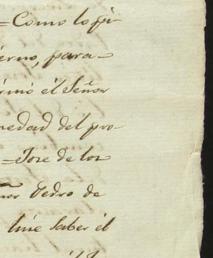 =Como lo pi-
ierno, para=
irmó él Señor
iedad del pro-
=Jose de los
ñor Pedro de
hiie saber él